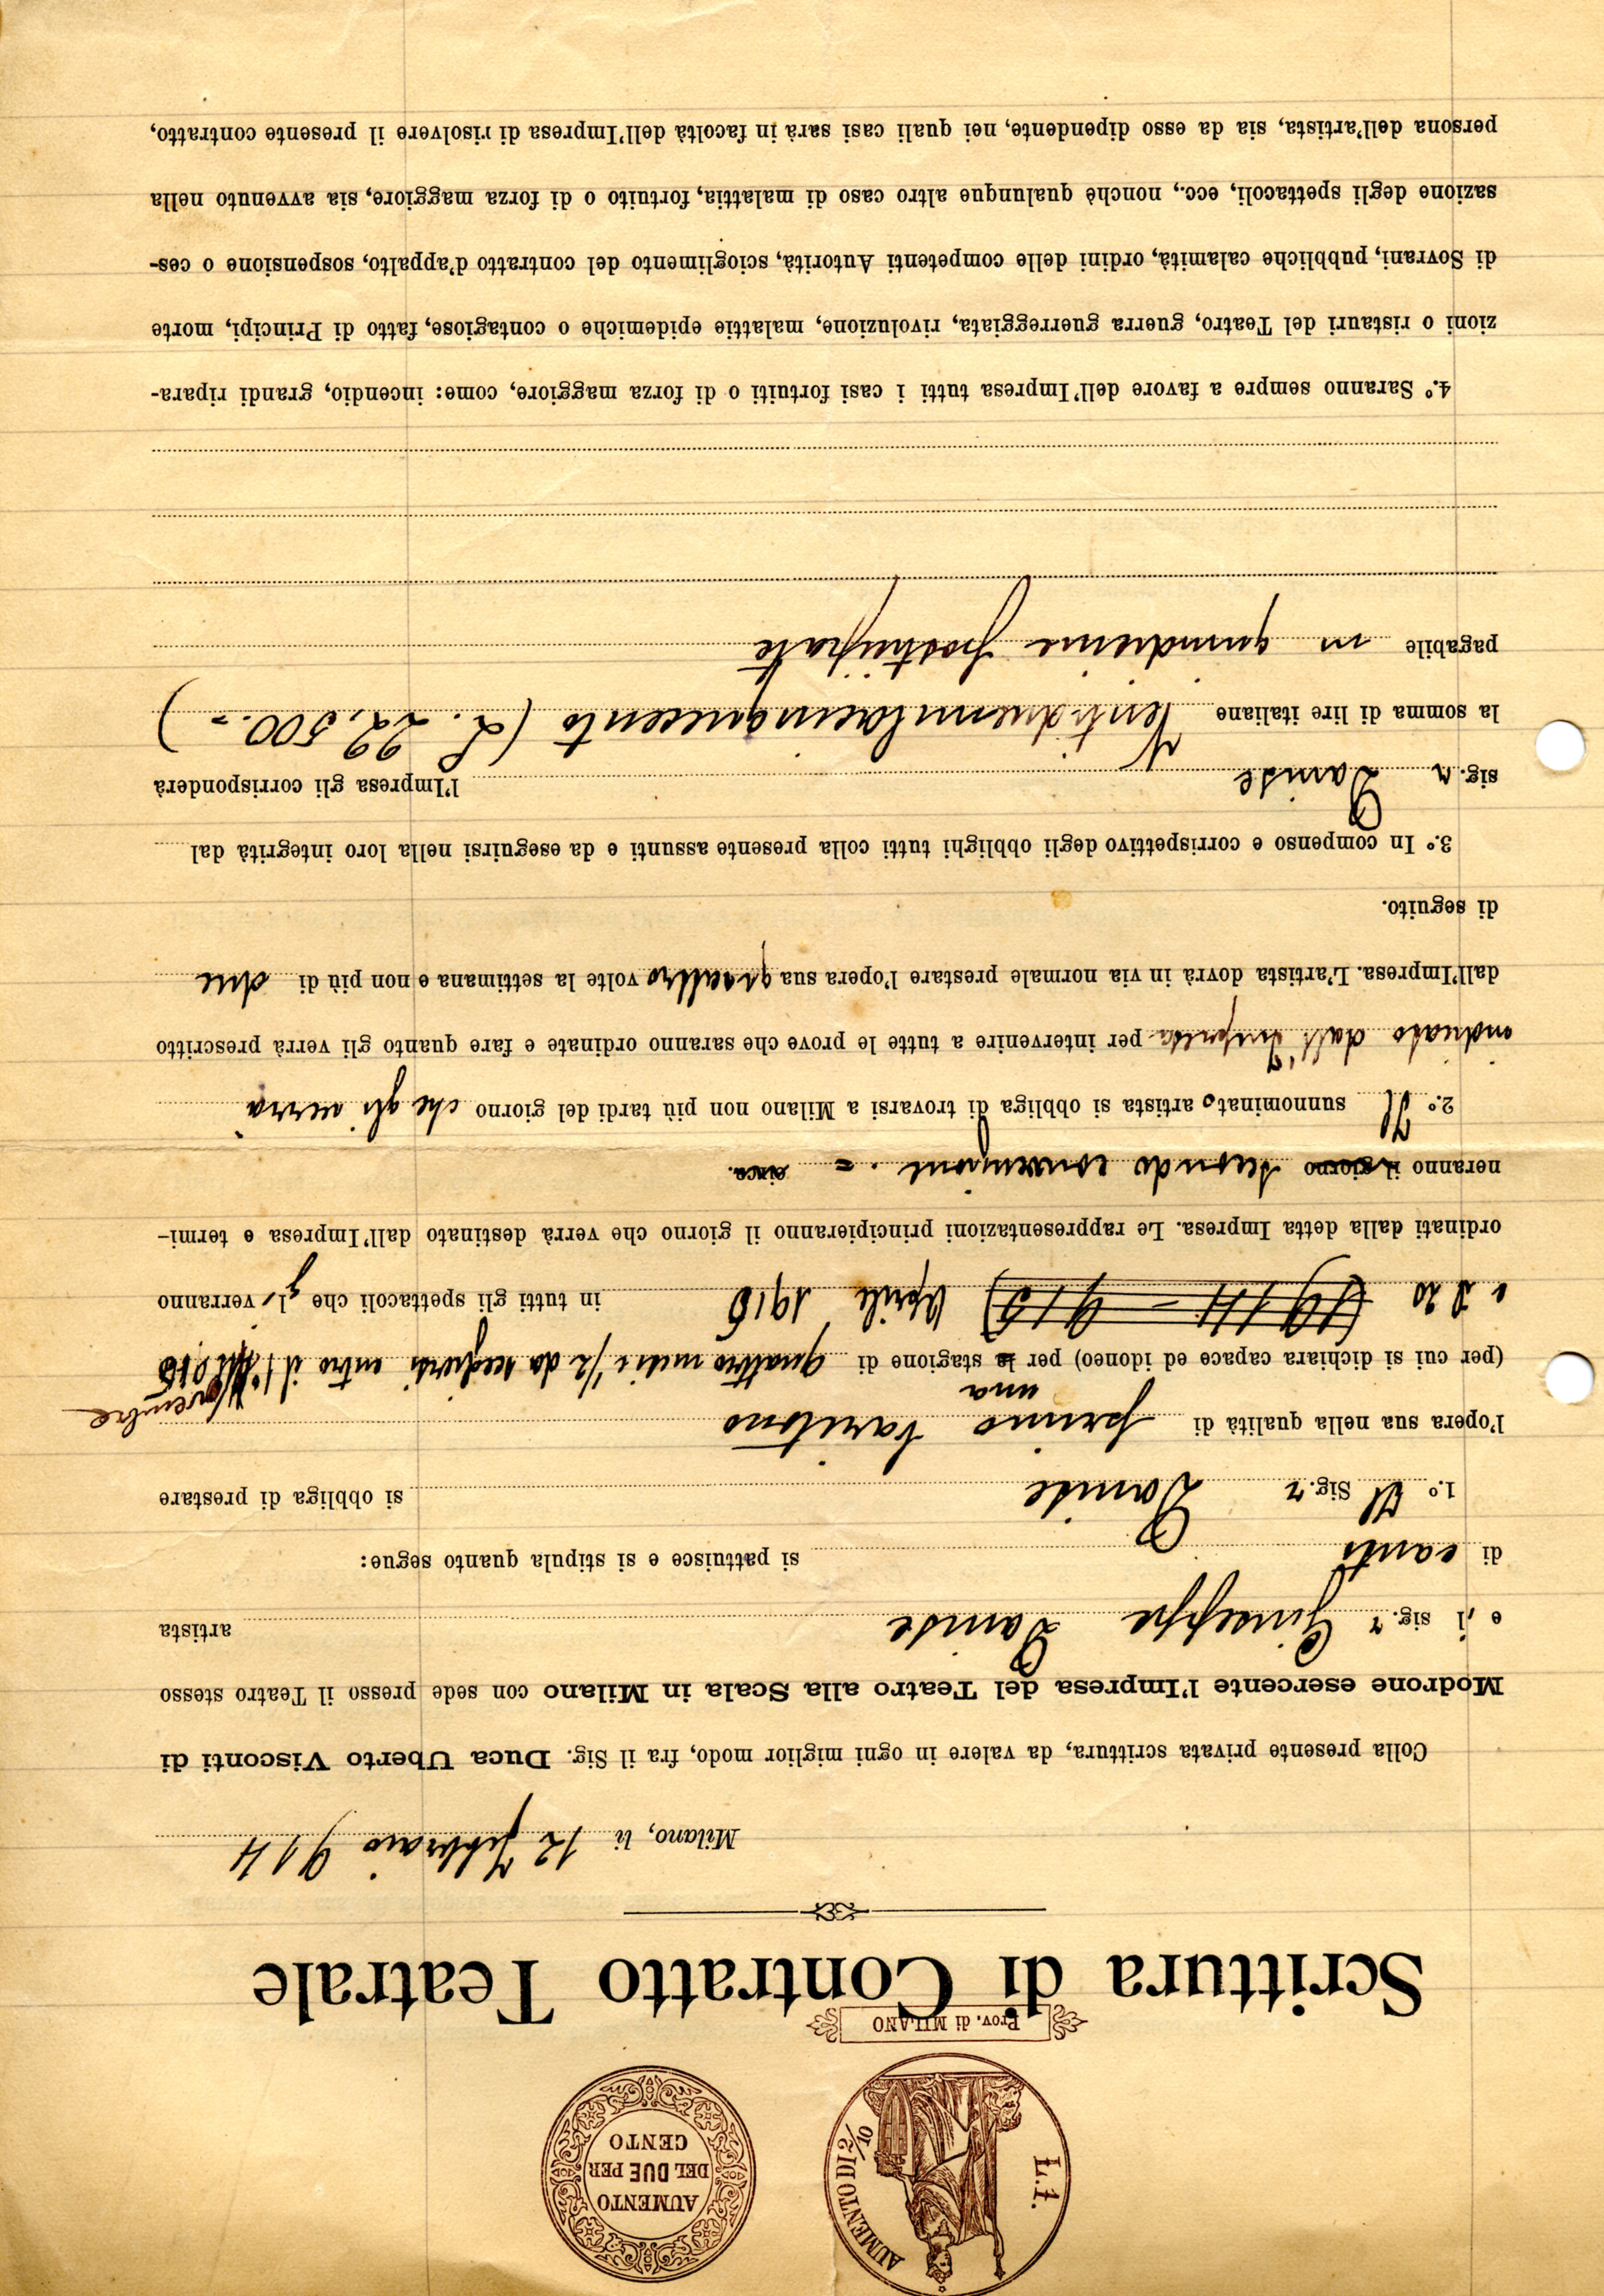 L. 1.
AUMENTO DI 2/10
AUMENTO
DEL DUE PER
CENTO
Prov. di MILANO
Scrittura di Contratto Teatrale
Milano, li 12 febbraio 914
Colla presente privata scrittura, da valere in ogni miglior modo, fra il Sig. Duca Uberto Visconti di
Modrone esercente l'Impresa del Teatro alla Scala in Milano con sede presso il Teatro stesso
e il sig. r Giuseppe Danise artista
di canto si pattuisce e si stipula quanto segue:
1.º Il Sig. r Danise si obbliga di prestare
l'opera sua nella qualità di primo baritono
una
Novembre
(per cui si dichiara capace ed idoneo) per la stagione di quattro mesi e 1/2 da scegliersi entro il 1º 1915
e 20 (1914 - 915) Aprile 1916 in tutti gli spettacoli che gli verranno
ordinati dalla detta Impresa. Le rappresentazioni principieranno il giorno che verrà destinato dall'Impresa e termi-
neranno il giorno secondo convenzione. = circa.
2.º Il sunnominato artista si obbliga di trovarsi a Milano non più tardi del giorno che gli verrà
indicato dall'Impresa per intervenire a tutte le prove che saranno ordinate e fare quanto gli verrà prescritto
dall'Impresa. L'artista dovrà in via normale prestare l'opera sua quattro volte la settimana e non più di due
di seguito.
3.º In compenso e corrispettivo degli obblighi tutti colla presente assunti e da eseguirsi nella loro integrità dal
sig. r Danise l'Impresa gli corrisponderà
la somma di lire italiane Ventiduemilacinquecento (L. 22,500.- )
pagabile in quindicine posticipate
4.º Saranno sempre a favore dell'Impresa tutti i casi fortuiti o di forza maggiore, come: incendio, grandi ripara-
zioni o ristauri del Teatro, guerra guerreggiata, rivoluzione, malattie epidemiche o contagiose, fatto di Principi, morte
di Sovrani, pubbliche calamità, ordini delle competenti Autorità, scioglimento del contratto d'appalto, sospensione o ces-
sazione degli spettacoli, ecc., nonchè qualunque altro caso di malattia, fortuito o di forza maggiore, sia avvenuto nella
persona dell'artista, sia da esso dipendente, nei quali casi sarà in facoltà dell'Impresa di risolvere il presente contratto,